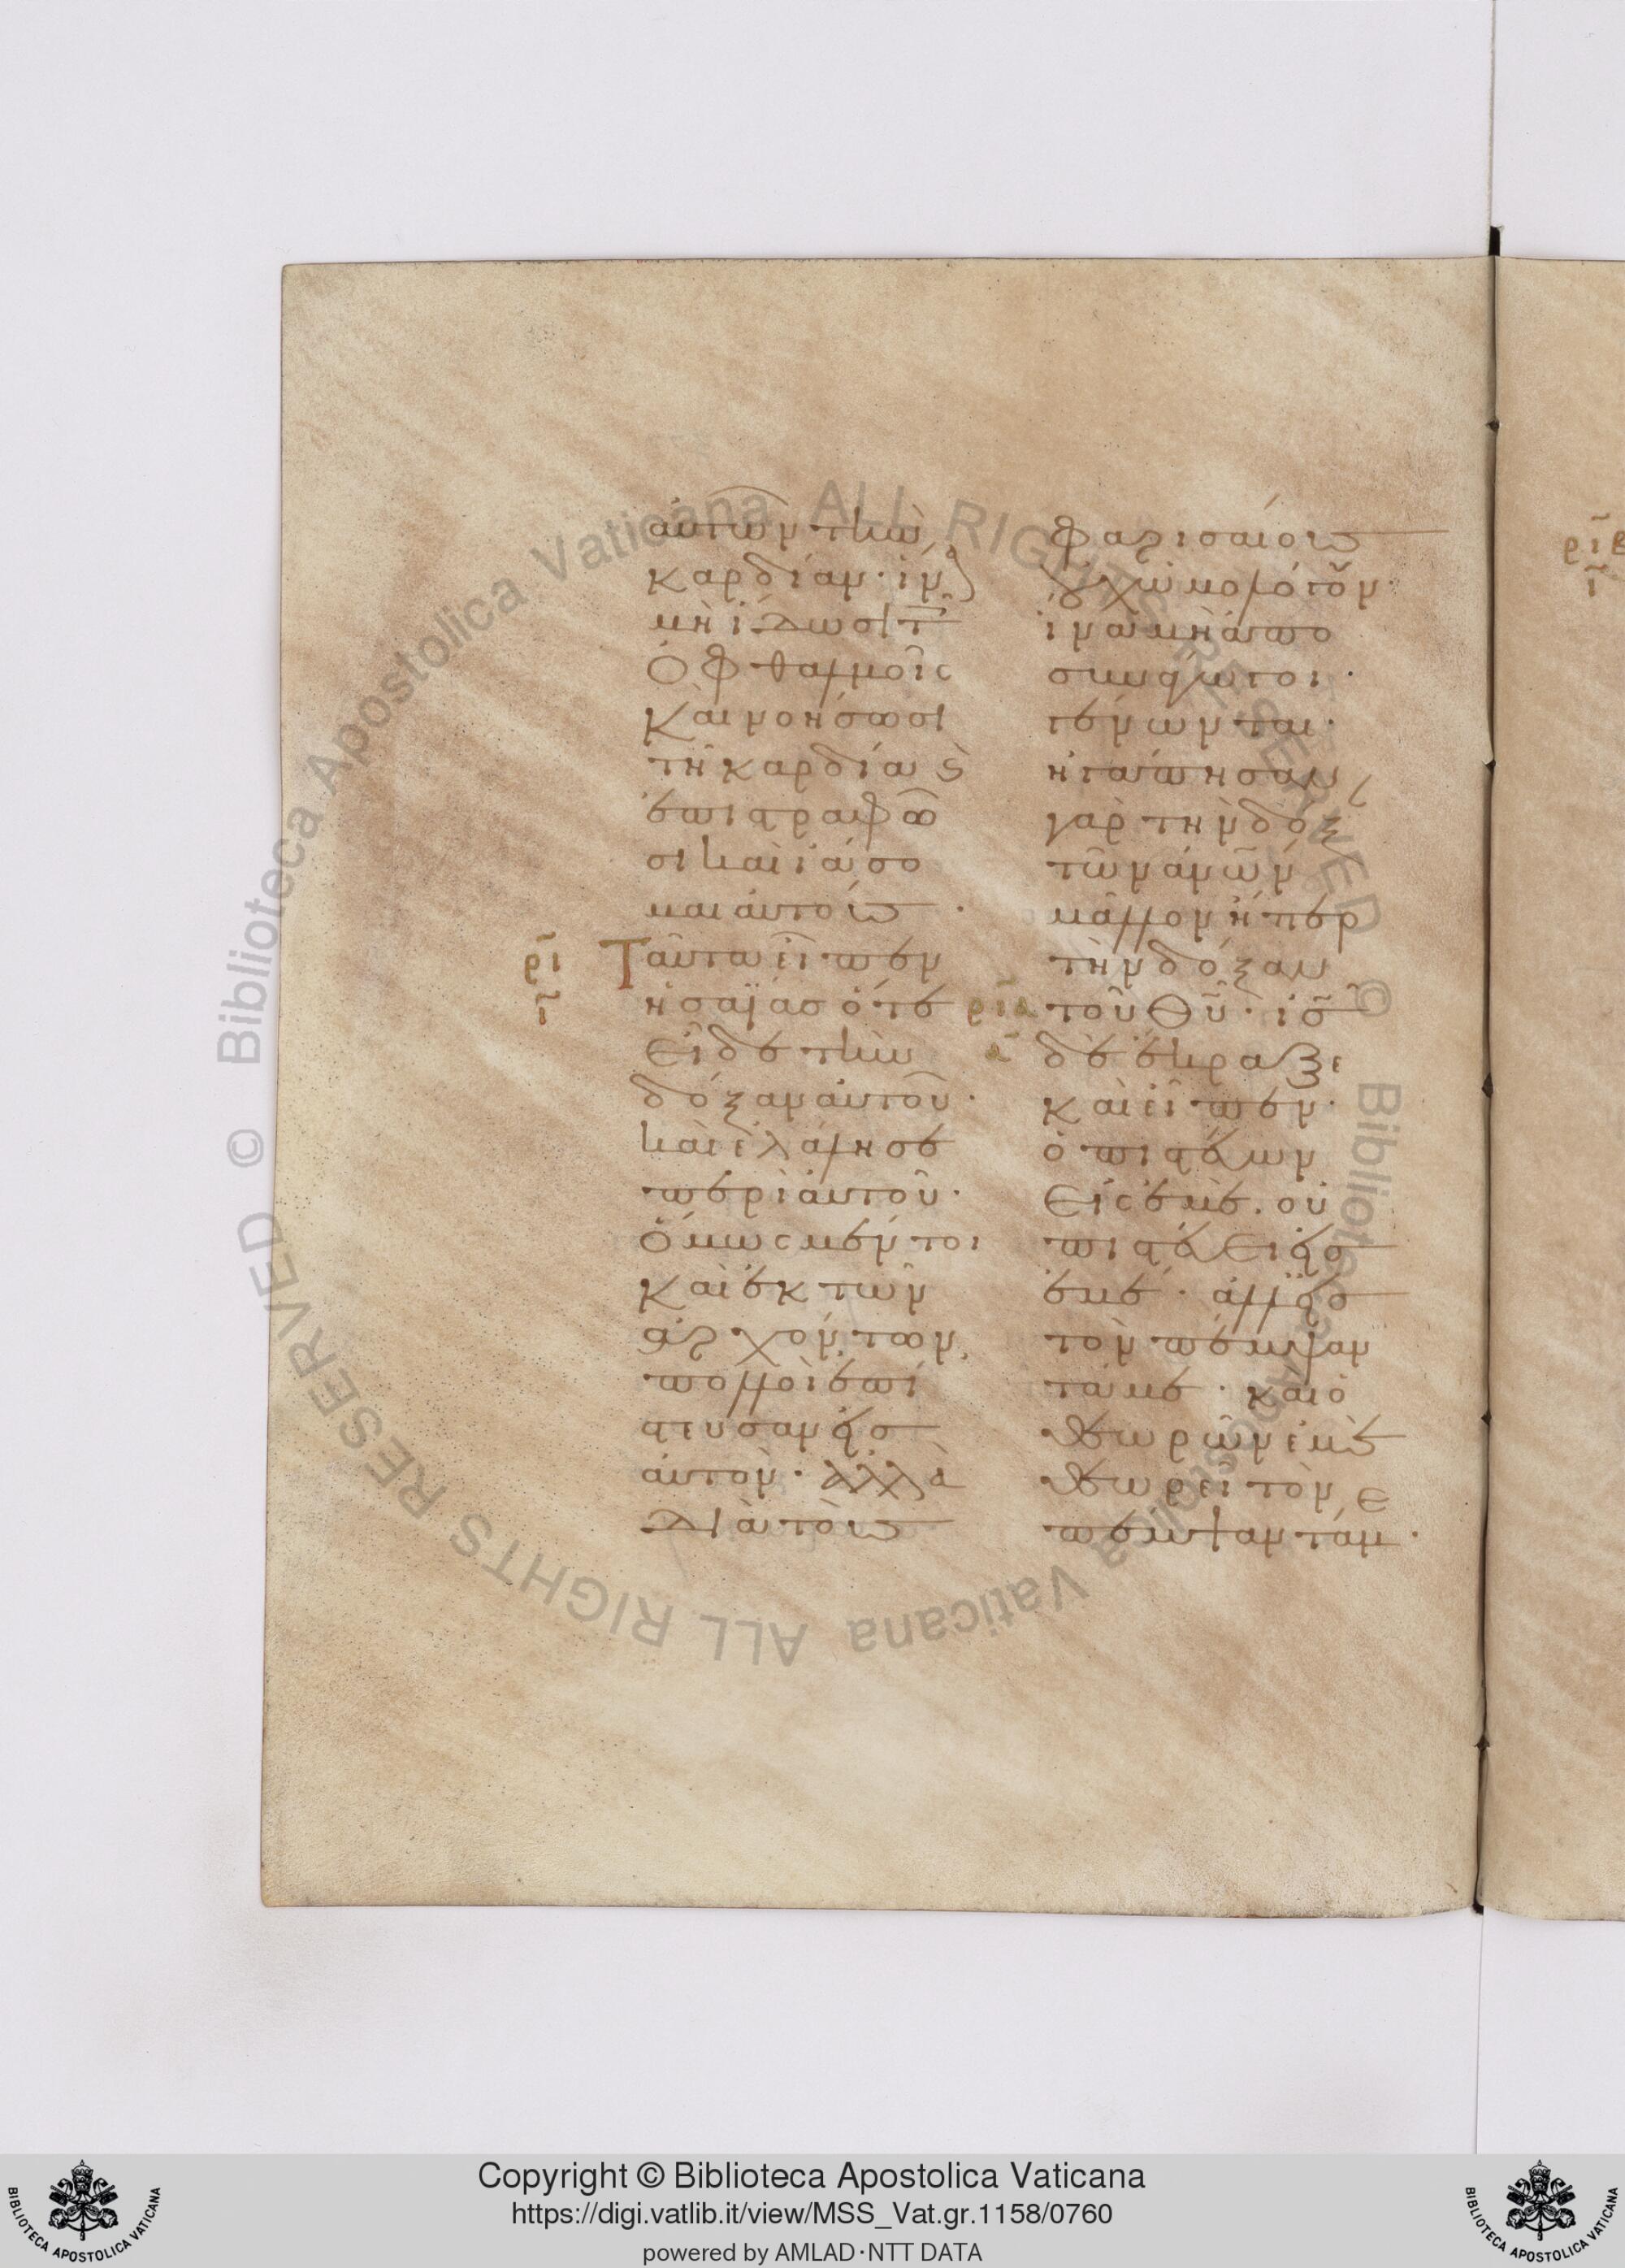 αὐτῶν τὴν
καρδίαν· ἵνα
μὴ ἴδωσι τοῖς
ὀφθαλμοῖς
καὶ νοήσωσι
τῇ καρδίᾳ καὶ
ἐπιστραφῶ
σι καὶ ἰάσο
μαι αὐτούς·
ρι
ι
Ταῦτα εἶπεν
ἠσαΐας ὅτε
εἶδε τὴν
δόξαν αὐτοῦ·
καὶ ἐλάλησε
περὶ αὐτοῦ·
ὅμως μέντοι
καὶ ἐκ τῶν
ἀρχόντων,
πολλοὶ ἐπί
στευσαν εἰς
αὐτὸν· ἀλλὰ
διὰ τοὺς
φαρισαίους
οὐχ ὡμολόγουν·
ἵνα μὴ ἀπο
συνάγωγοι·
γένωνται·
ἠγάπησαν
γὰρ τὴν δόξαν
τῶν ἀνθρώπων
μᾶλλον ἤπερ
τὴν δόξαν
ρια
α
τοῦ θυ· ις
δὲ ἔκραξε
καὶ εἶπεν·
ὁ πιστεύων
εἰς ἐμὲ· οὐ
πιστεύει εἰς
ἐμέ· ἀλλ' εἰς
τὸν πέμψαν
τά με· καὶ ὁ
θεωρῶν ἐμὲ
θεωρεῖ τὸν
πέμψαντά μ ε·
ριβ
ι
Copyright © Biblioteca Apostolica Vaticana
https://digi.vatlib.it/view/MSS_Vat.gr.1158/0760
powered by AMLAD·NTT DATA
BIBLIOTECA APOSTOLICA VATICANA
BIBLIOTECA APOSTOLICA VATICANA
© Biblioteca Apostolica Vaticana ALL RIGHTS RESERVED © Biblioteca Apostolica Vaticana ALL RIGHTS RESERVED